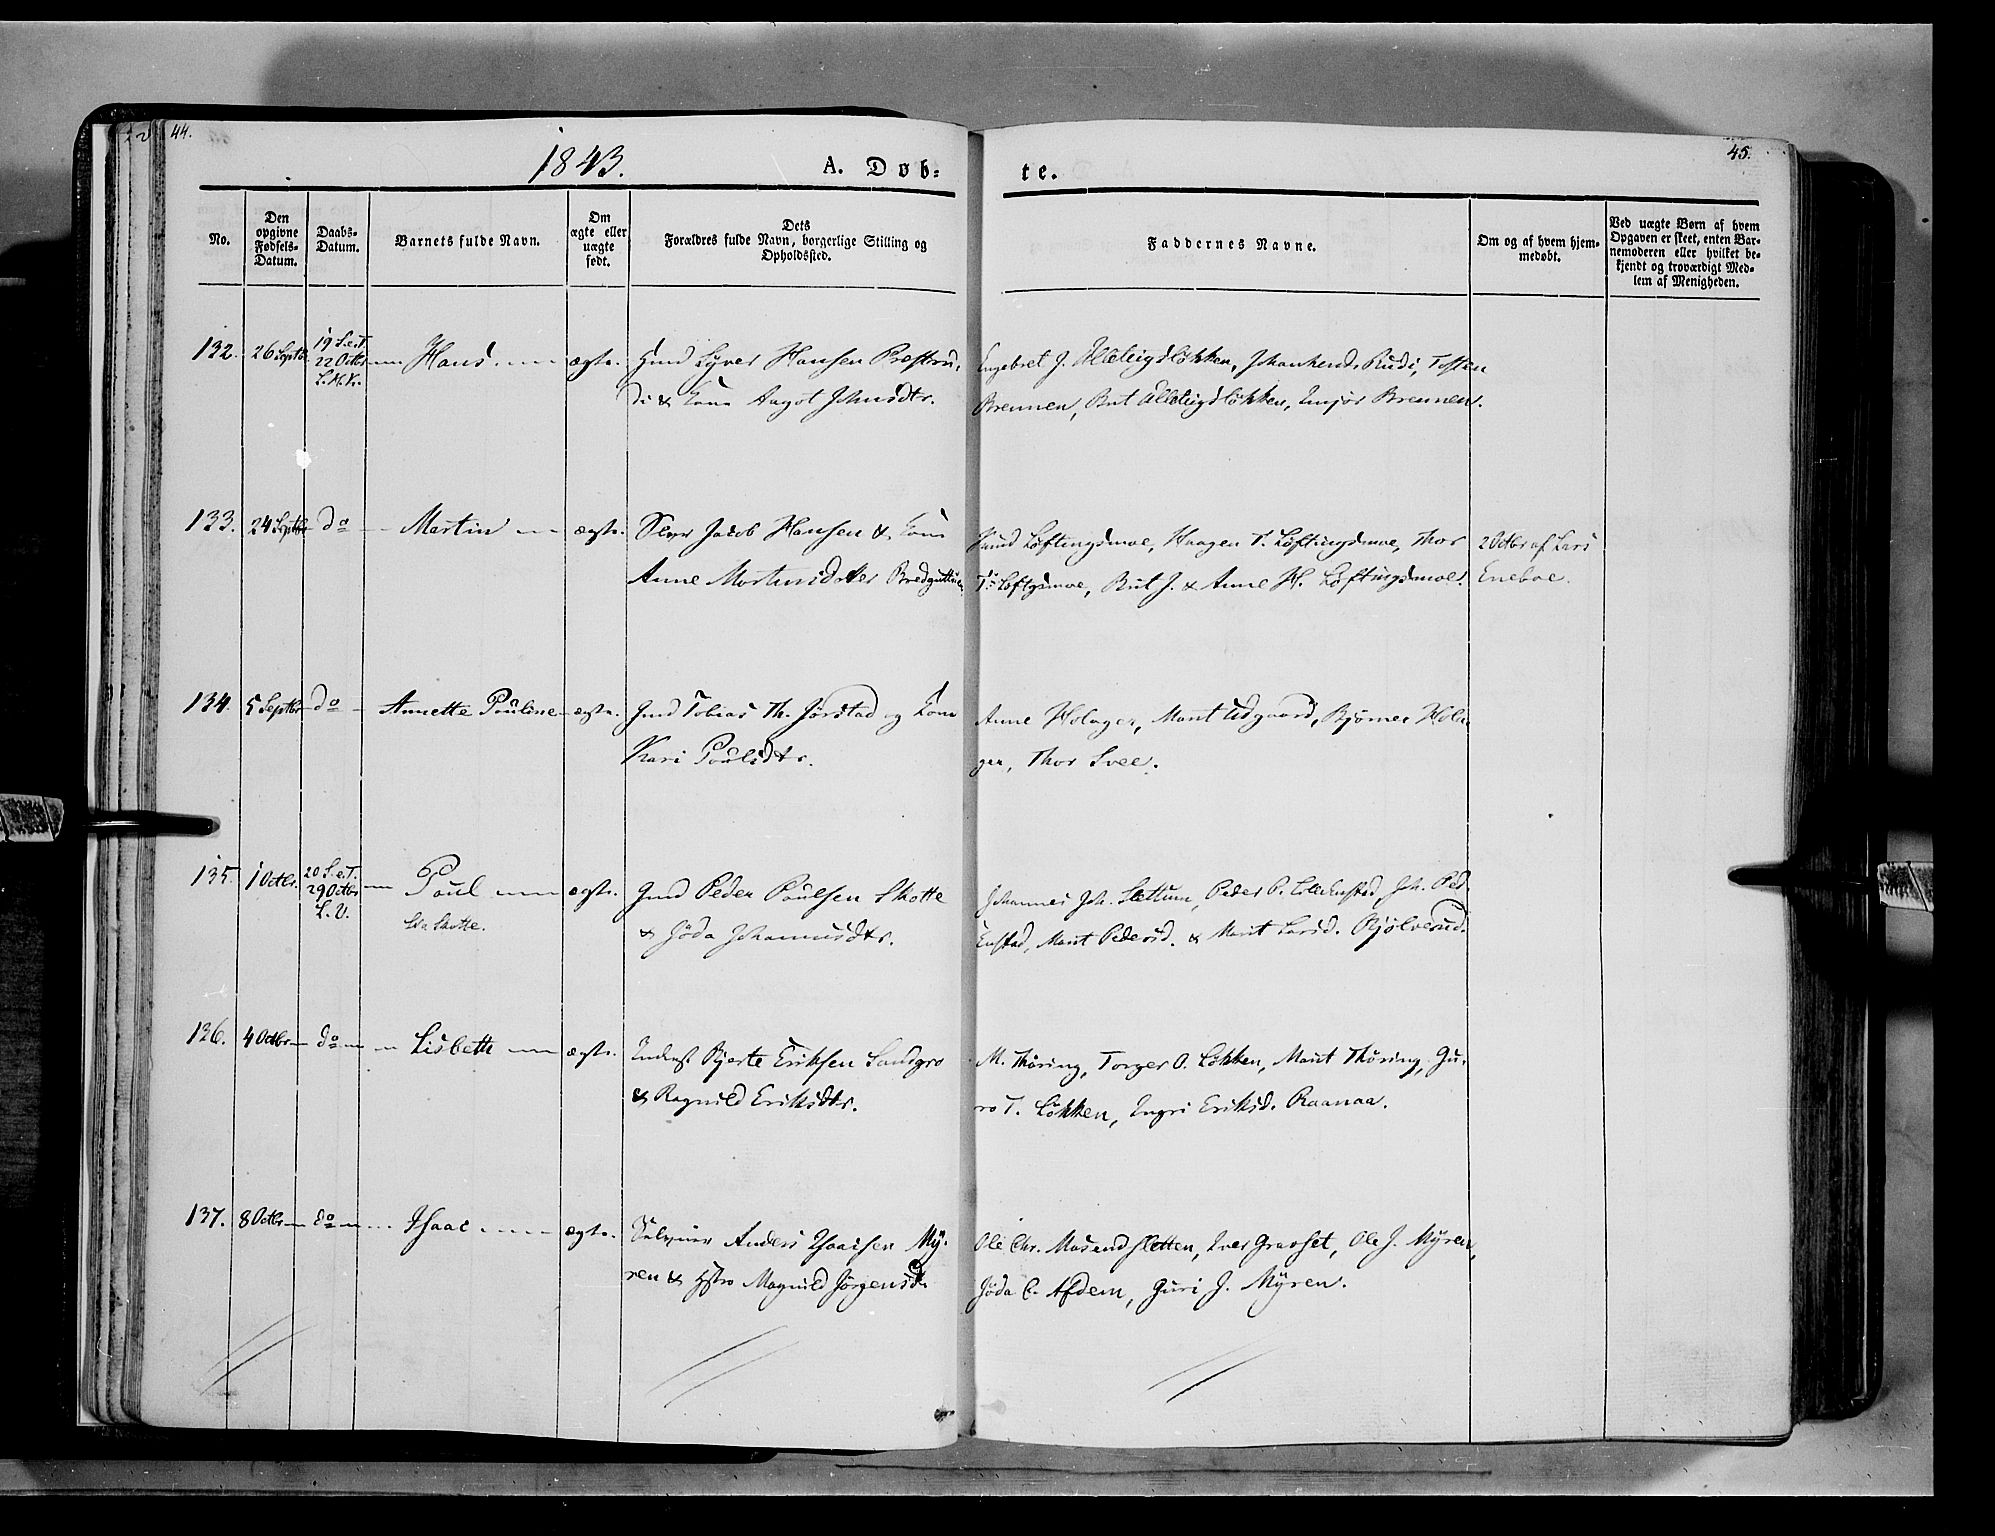 44.
1843.
A. Døb-
te.
45.
No.
Den
opgivne
Fødsels-
Datum.
Daabs-
Datum.
Barnets fulde Navn.
Om
ægte eller
uægte
født.
Dets
Forældres fulde Navn, borgerlige Stilling og
Opholdssted.
Faddernes Navne.
Om og af hvem hjem-
medøbt.
Ved uægte Børn af hvem
Opgaven er skeet, enten Bar-
nemoderen eller hvilket be-
kjendt og troværdigt Med-
lem af Menigheden.
132. 26 Septbr 19 S. e. T.
22 Octbr
Hans ægte. Hansen
& Kone Aagot Johnsdtr.
Engebret J. Alleleigsløkken, Rudi, Tosten
Brennen, Brit Alleleigsløkken, Brennen.
133. 24 Septbr do Martin ægte. Jacob Hansen & Kone
Anne Mortensdatter
Løftingsmoe, Haagen T. Løftingsmoe, Thor
Brit J. & Anne H. Løftingsmoe.
2 Octbr af Lars
Eneboe.
134. 5 Septbr do Annette Pouline ægte. Gmd Tobias Th. Jörstad og Kone
Kari Poulsdtr.
Anne Holager, Marit Udgaard, Hola-
ger, Thor Svee.
135. 1 Octbr. 20 S. e. T.
29 Octbr
Poul ægte. Gmd Peder Poulsen Skotte
& Jöda Johannesdtr.
Johannes Joh. Slettum, Peder P. Joh. Ped.
Enstad, Marit Pedersd. & Marit Larsd.
136. 4 Octbr do Lisbeth ægte. Inderst Eriksen
& Ragnild Eriksdtr.
M. Thöring, Torger O. Løkken, Marit Thöring, Gu-
ro T. Løkken, Ingri Eriksd. Raanaa.
137. 8 Octbr do Isaac ægte. Anders Isaacsen My-
ren & Hstro Magnild Jörgensd.
Ole Chr. Iver Ole J. Myren,
Jöda C. Guri J. Myren.